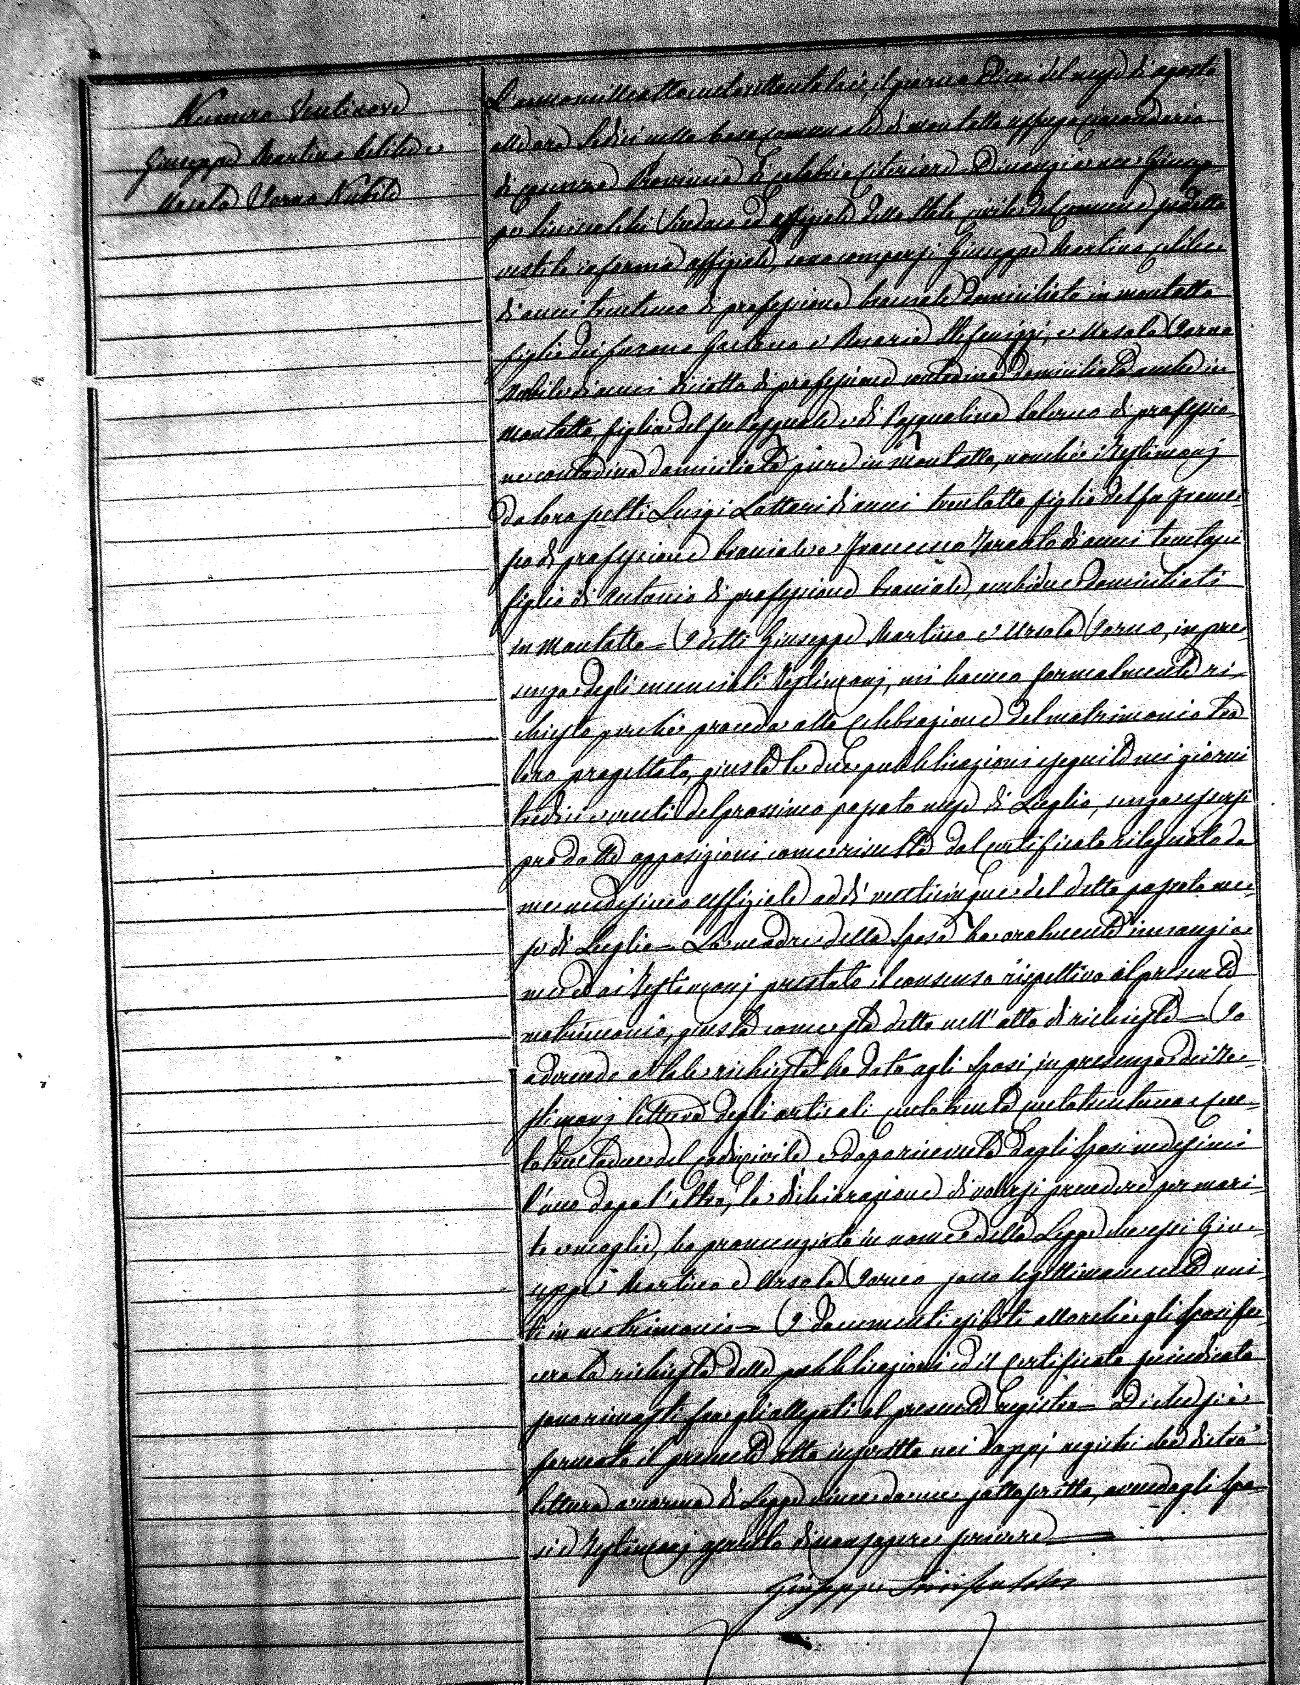 Numero Ventinove
Giuseppe Martino Celibe e
Ursola Iorno Nubile
L'anno mille ottocento sessanta sei, il giorno dieci del mese di agosto
alle ore sedici nella Casa Comunale di Montalto uffugo circondario
di Cosenza Provincia di Calabria Citeriore. Dinanzi a me Giusep
pe Sindaco ed uffiziale dello Stato civile del Comune predetto
vestito in forma uffiziale, sono comparsi Giuseppe Martino celibe
di anni trentuno di professione bracciale domiciliato in Montalto
figlio dei furono Gaetano e Rosaria e Ursola Iorno
Nubile di anni diciotto di professione contadina domiciliata anche in
Montalto figlia del fu Pasquale e di Pasqualina Salerno di professio
ne contadina domiciliata pure in Montalto, nonché i Testimonj
da loro scelti Luigi Lattari di anni trentotto figlio del fu France
sco di professione bracciale e Francesco di anni trentasei
figlio di Antonio di professione bracciale, ambidue domiciliati
in Montalto — I detti Giuseppe Martino e Ursola Iorno, in pre
senza degli enunciati Testimonj, mi hanno formalmente ri
chiesto perché proceda alla celebrazione del matrimonio tra
loro progettato, giusta le due pubblicazioni eseguite nei giorni
tredici e venti del prossimo passato mese di Luglio, senza essersi
prodotte opposizioni come risulta dal certificato rilasciato da
me medesimo uffiziale addì venticinque del detto passato me
se di Luglio — La madre della sposa ha oralmente innanzi a
me ed ai Testimonj prestato il consenso rispettivo al presente
matrimonio, giusta come sta detto nell'atto di richiesta — Io
aderendo a tale richiesta ho dato agli Sposi, in presenza dei Te
stimonj lettura degli articoli centotrenta centotrentuno e cen
totrentadue del codice civile e dopo ricevuta dagli Sposi medesimi
l'uno dopo l'altro, la dichiarazione di volersi prendere per mari
to e moglie, ho pronunziato in nome della Legge che essi Giu
seppe Martino e Ursola Iorno sono legittimamente uni
ti in matrimonio — I documenti esibiti allorché gli Sposi fe
cero la richiesta delle pubblicazioni ed il certificato preindicato
sono rimasti fra gli allegati al presente registro — Di che si è
formato il presente atto inscritto nei doppj registri che dietro
lettura a norma di Legge viene da me sottoscritto, avendo gli Spo
si e Testimonj asserito di non sapere scrivere —
Giuseppe